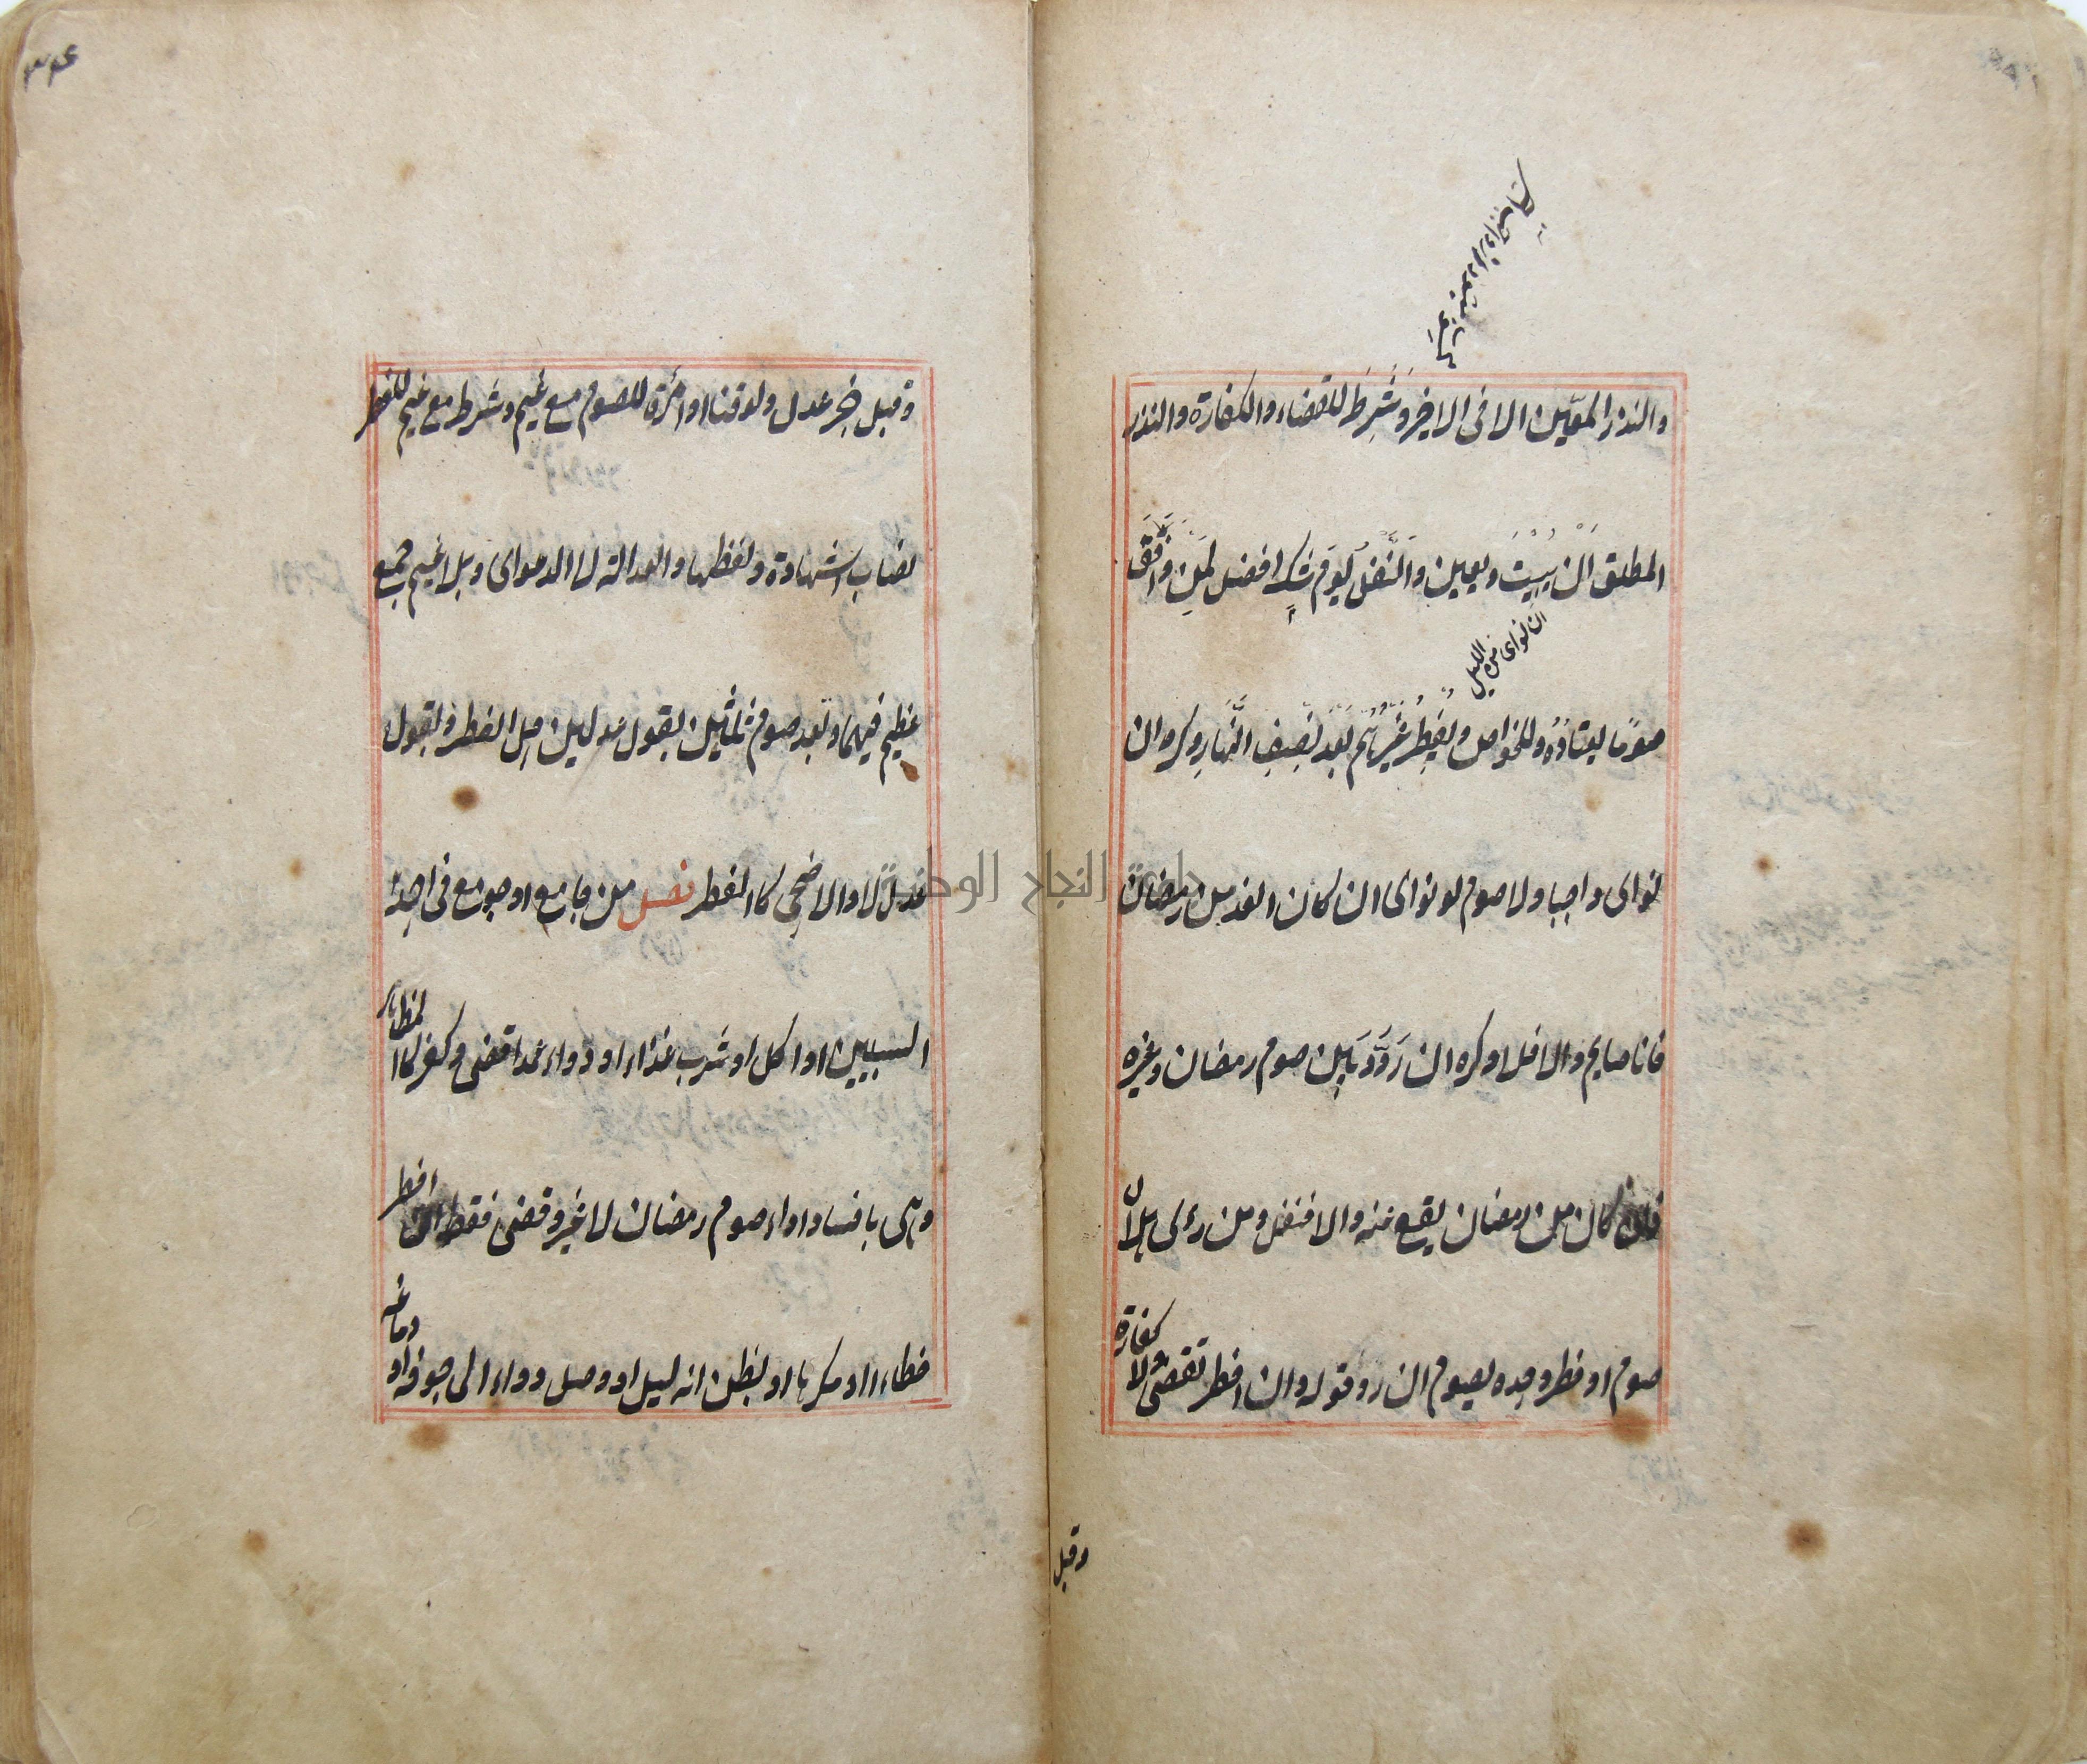 والنذر المعين الا فى الاخير وَشُرِطَ للقضاء والكفارة والنذر
المطلق اَنْ يُبَيِّتَ ويعين وَالنَّفلُ يَوْمَ شكٍ افضل لِمَنْ وَافَقَ
ان نواى من الليل
صومًا يعتادُهُ وللخواص ويُفْطِرُ غَيْرُهُمْ بَعْدَ نِصْفِ النَّهَارِ وكره ان
نواى واجبا ولا صوم لو نواى ان كان الغد من رمضان
فانا صايم والا فلا وكره ان رَدَّدَ بَيْن صوم رمضان وغيره
فان كان من رمضان يقع عنه والا فنفل ومن رءى هلال
صوم او فطر وحده يصوم ان رد قوله وان افطر تقضى ولا كفارة
وقبل
٣٤
وقبل خبر عدل ولو قنا او امرءة للصوم مع غيم وشرط مع غيم للفطر
نصاب الشهادة ولفظها والعدالة لا الدعواى وبلا غيم جمع
عظيم فيهما وبعد صوم ثلثين بقول عدلين حل الفطر وبقول
عدلٍ لا والاضحى كالفطر فصل من جامع او جومع فى احد
السبيلين او اكل او شرب غذاء او دواء عمدا قضى وكفر كالمظاهر
وهى بافساد اداء صوم رمضان لا غير وقضى فقط ان افطر
خطاء او مكرها او بظن انه ليل او وصل دواء الى جوفه او دماغه
دار النجاح الوط